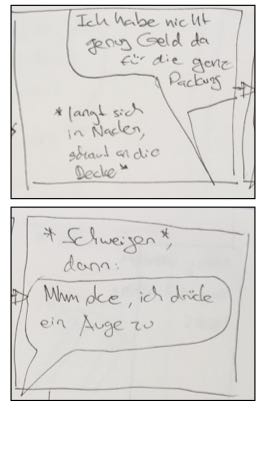 Ich habe nicht
genug Geld da
für die ganze
Packung
*langt sich
in Nacken,
schaut an die
Decke*
*Schweigen*,
dann:
Mhm oke, ich drücke
ein Auge zu